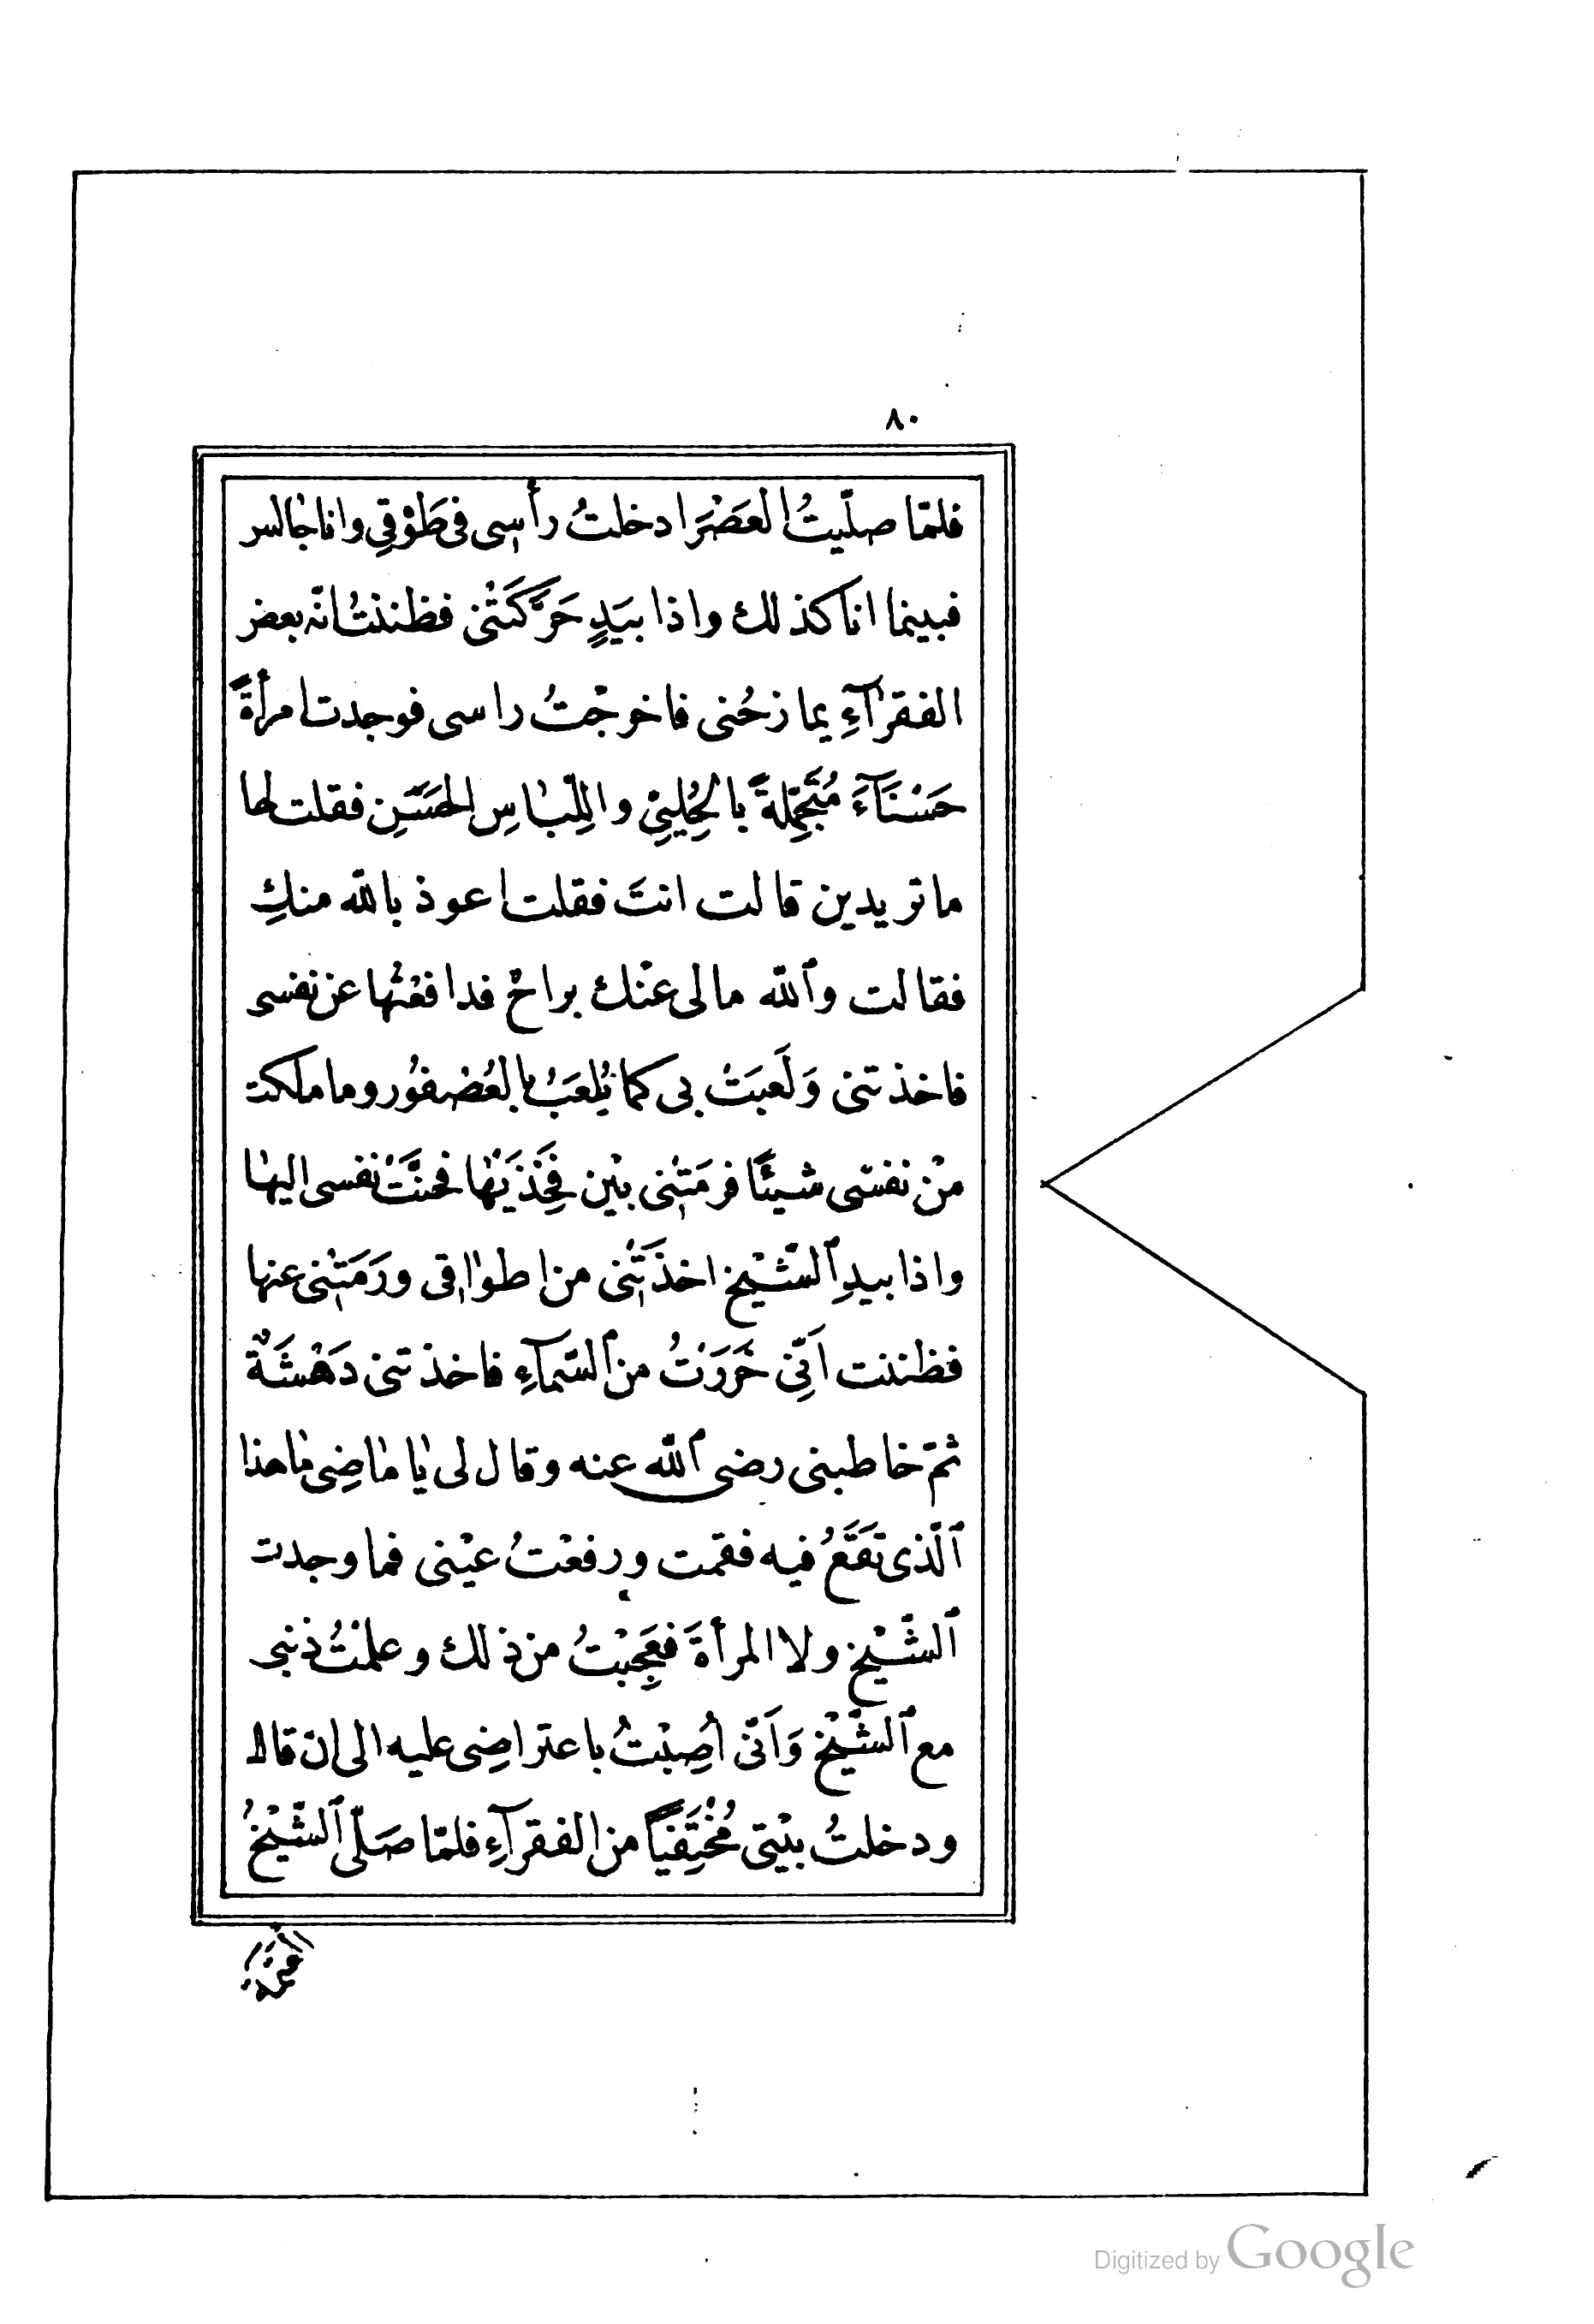 ٨٠
فلمّا صلّيتُ العَصْرَ ادخلتُ رأسى فى طَوْقِي وانا جالس
فبينما انا كذلك واذا بيَدٍ حَرَّكَتْنى فظننتُ انّه بعض
الفقرآءِ يمازحُنى فاخرجْتُ راسى فوجدت امرأةً
حَسْنَآءَ مُتَجَمِّلةً بالحُلِيِّ واللِّبَاسِ الحَسَنِ فقلت لها
ما تريدين قالت انتَ فقلت اعوذ بالله منكِ
فقالت وٱللّه مالى عنْك براحٌ فدافعْتُها عن نفسى
فاخذتنى وَلَعِبَتْ بى كما يُلعَبُ بالعُصْفوُر وما ملكت
مِنْ نفسى شيئًا فرمَتْنى بيْن فَخِذَيْها فحنَّتْ نفسى اليها
واذا بيدِ ٱلشّيْخ اخذَتْنى من اطواقى ورَمَتْنى عنها
فظننت اَنّى خَرَرْتُ من ٱلسّمآءِ فاخذتنى دَهْشَةٌ
ثمّ خاطبنى رضى ٱللّه عنه وقال لى يا ماضِى ما هذا
ٱلّذى تَقَعُ فيه فقمت ورفعْتُ عيْنى فما وجدت
ٱلشّيْخ ولا المرأةَ فعَجِبْتُ من ذلك وعلمْتُ ذنبى
مع ٱلشّيْخ وَاَنّى اُصِبْتُ باعتراضِى عليه الى ان قال
ودخلتُ بيْتى مُخْتَفِيًا من الفقرآءِ فلمّا صَلّى ٱلشّيْخُ
Digitized by Google